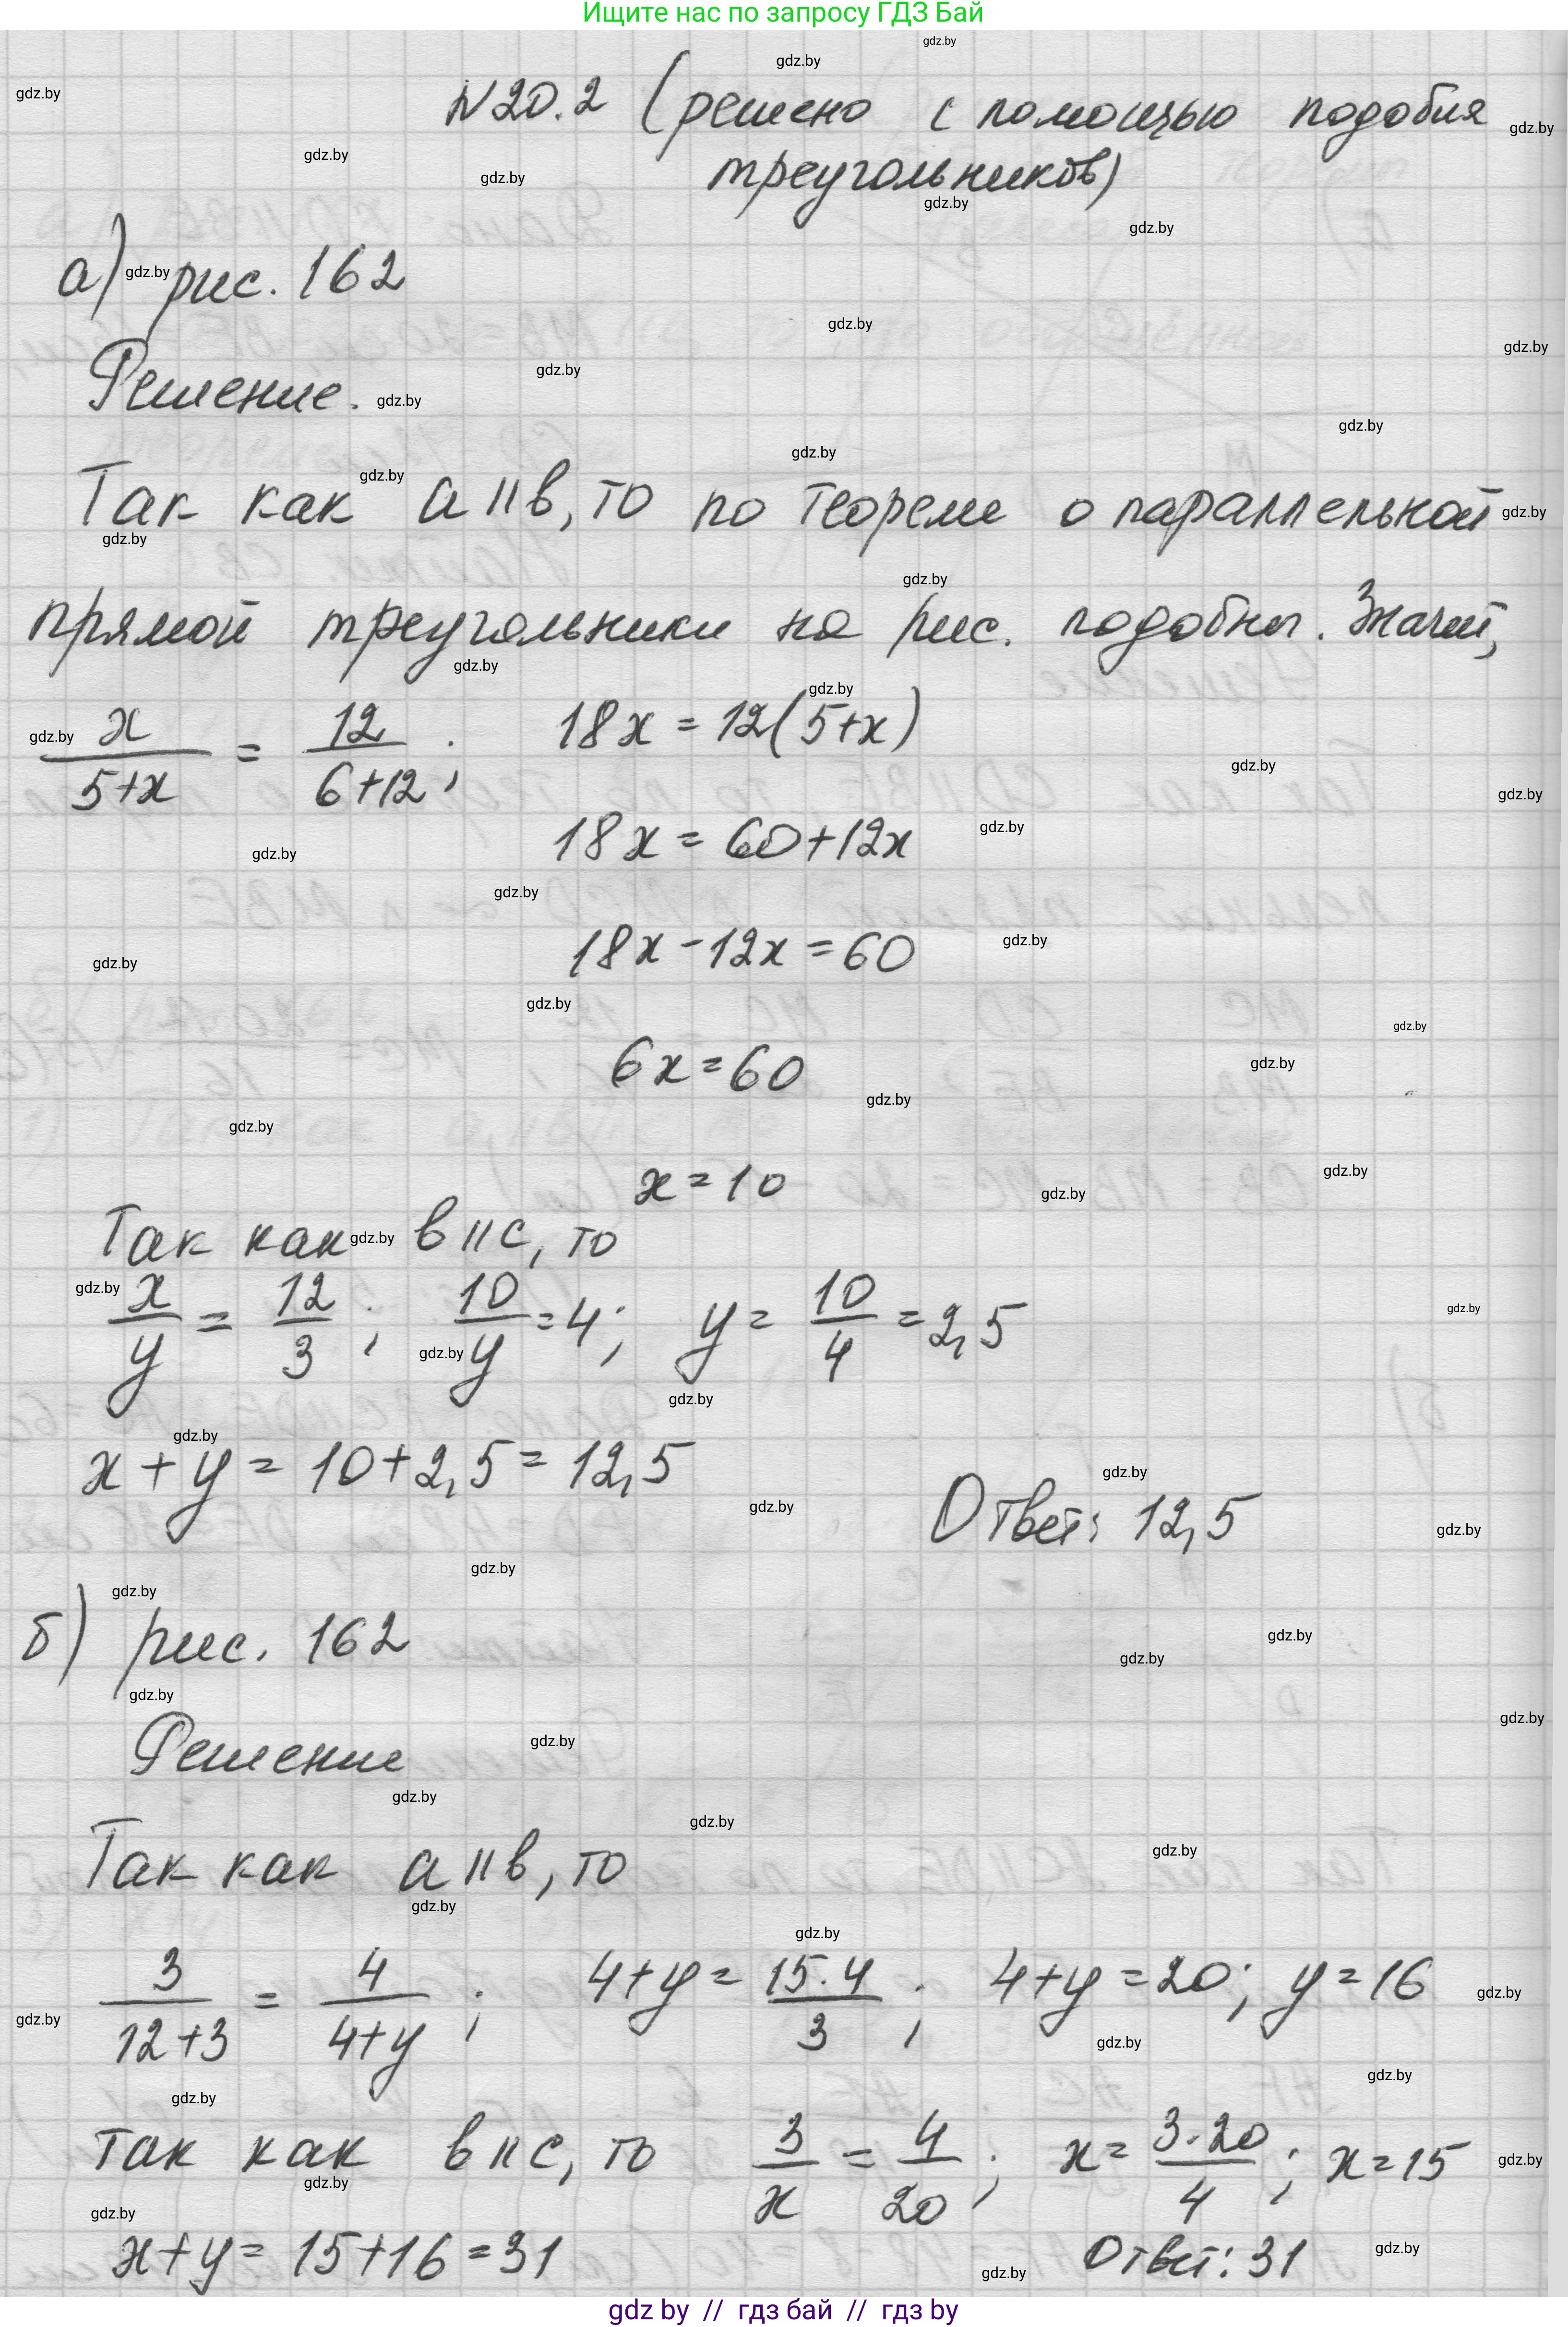 Ищите нас по запросу ГДЗ Бай
N20.2 (решено с помощью подобия
треугольников)
а) рис. 162
Решение.
Так как a || b, то по теореме о параллельной
прямой треугольники на рис. подобны. Значит,
x/(5+x) = 12/(6+12); 18x = 12(5+x)
18x = 60+12x
18x - 12x = 60
6x = 60
x = 10
Так как b || c, то
x/y = 12/3; 10/y = 4; y = 10/4 = 2,5
x + y = 10 + 2,5 = 12,5
Ответ: 12,5
б) рис. 162
Решение
Так как a || b, то
3/(12+3) = 4/(4+y); 4+y = 15·4/3; 4+y = 20; y = 16
так как b || c, то 3/x = 4/20; x = 3·20/4; x = 15
x+y = 15+16 = 31
Ответ: 31
gdz by // гдз бай // гдз by